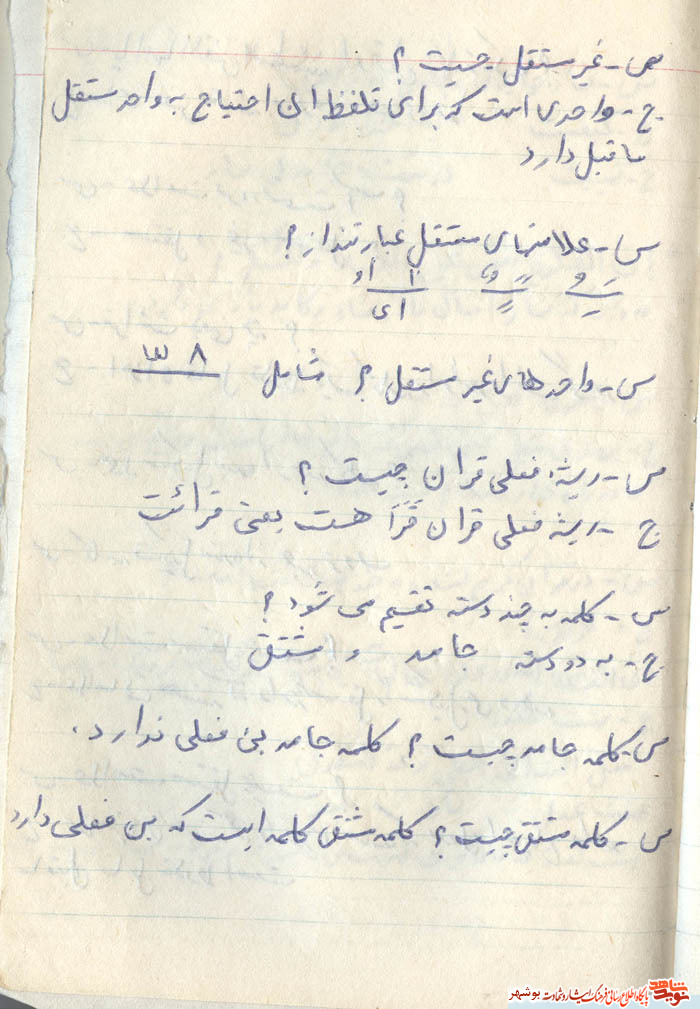 س - غیر مستقل چیست ؟
ج - واحدی است که برای تلفظ آن احتیاج به واحد مستقل
ماقبل دارد
س - علامتهای مستقل عبارتند از ؟
ـَـِـُ ـًـٍـٌ ا او
ای
س - واحدهای غیر مستقل ؟ شامل
س - ریشه فعلی قران چیست ؟
ج - ریشه فعلی قران قَرَأَ هست یعنی قرائت
س - کلمه به چند دسته تقسیم می شود ؟
ج - به دو دسته جامد و مشتق
س - کلمه جامد چیست ؟ کلمه جامد بن فعلی ندارد .
س - کلمه مشتق چیست ؟ کلمه مشتق کلمه ایست که بن فعلی دارد
نوید شاهد
پایگاه اطلاع رسانی فرهنگ ایثار و شهادت بوشهر